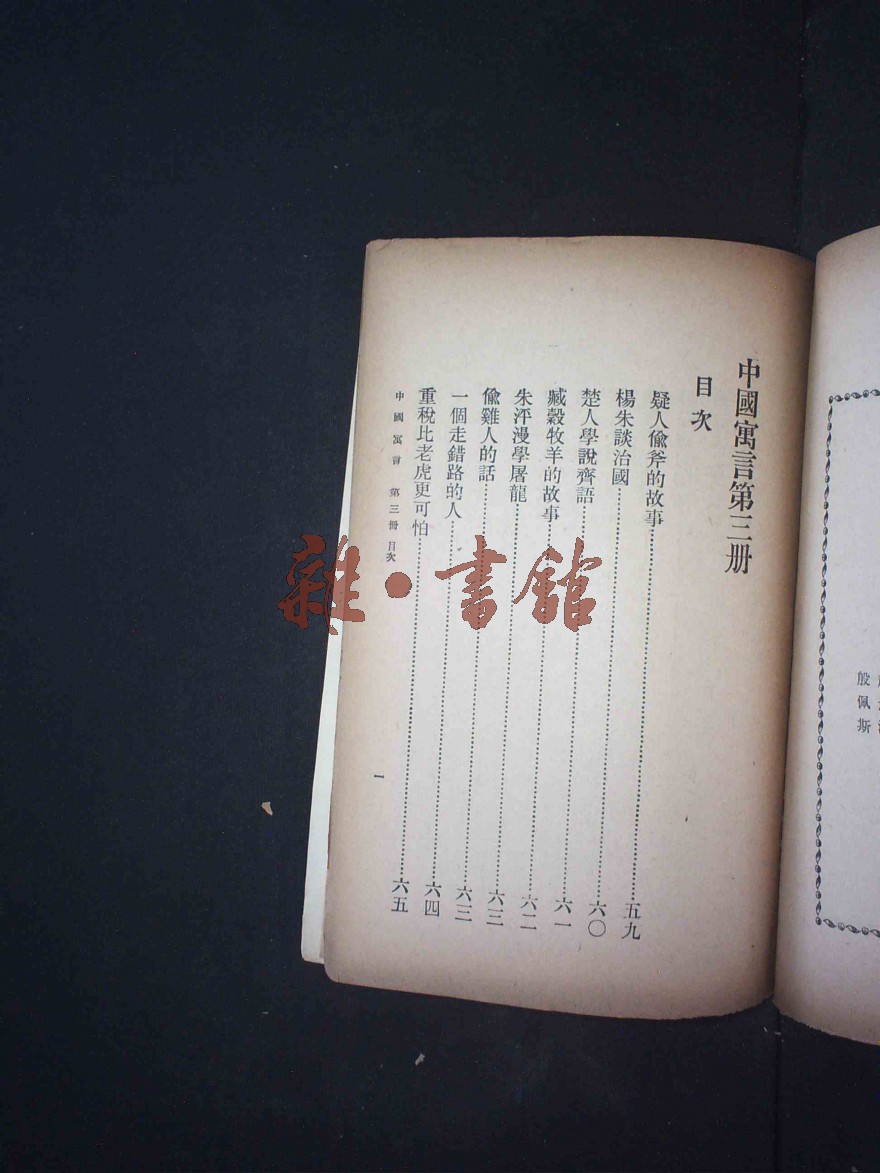 中國寓言第三册
目次
疑人偸斧的故事……五九
楊朱談治國……六〇
楚人學說齊語……六一
臧穀牧羊的故事……六二
朱泙漫學屠龍……六三
偸雞人的話……六三
一個走錯路的人……六四
重稅比老虎更可怕……六五
中國寓言 第三冊 目次
一
殷佩斯
雜·書館